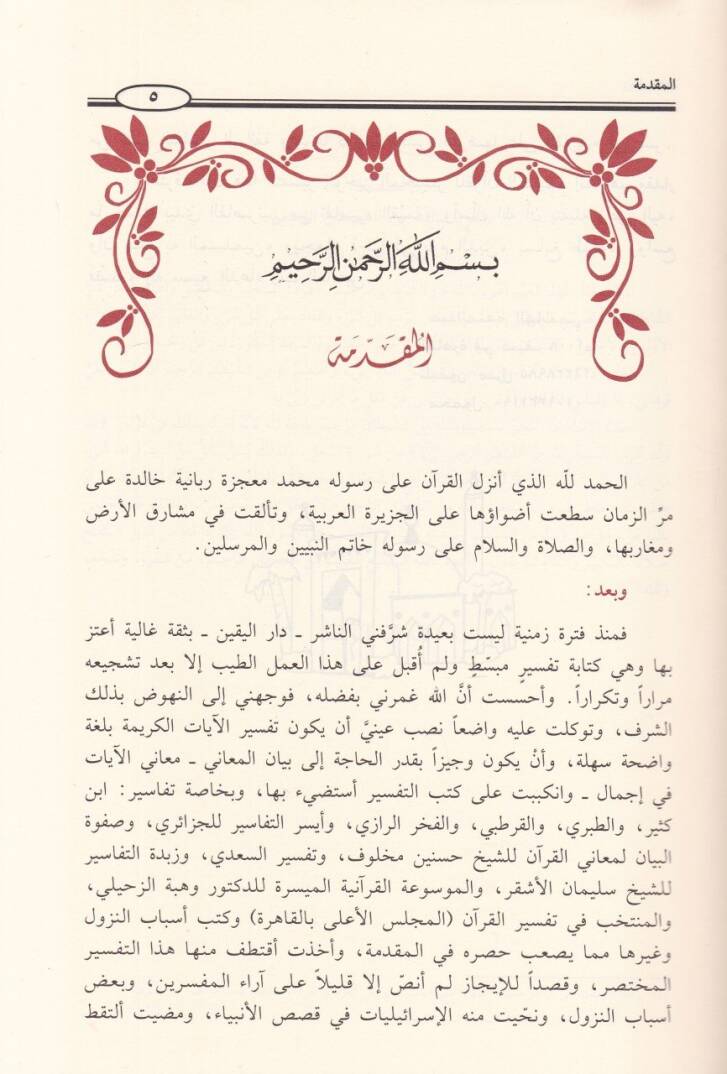 المقدمة
٥
بسم الله الرحمن الرحيم
المقدمة
الحمد لله الذي أنزل القرآن على رسوله محمد معجزة ربانية خالدة على
مرِّ الزمان سطعت أضواؤها على الجزيرة العربية، وتألقت في مشارق الأرض
ومغاربها، والصلاة والسلام على رسوله خاتم النبيين والمرسلين.
وبعد:
فمنذ فترة زمنية ليست بعيدة شرَّفني الناشر ـ دار اليقين ـ بثقة غالية أعتز
بها وهي كتابة تفسيرٍ مبسّطٍ ولم أُقبل على هذا العمل الطيب إلا بعد تشجيعه
مراراً وتكراراً. وأحسست أنَّ الله غمرني بفضله، فوجهني إلى النهوض بذلك
الشرف، وتوكلت عليه واضعاً نصب عينيَّ أن يكون تفسير الآيات الكريمة بلغة
واضحة سهلة، وأنْ يكون وجيزاً بقدر الحاجة إلى بيان المعاني ـ معاني الآيات
في إجمال ـ وانكببت على كتب التفسير أستضيء بها، وبخاصة تفاسير: ابن
كثير، والطبري، والقرطبي، والفخر الرازي، وأيسر التفاسير للجزائري، وصفوة
البيان لمعاني القرآن للشيخ حسنين مخلوف، وتفسير السعدي، وزبدة التفاسير
للشيخ سليمان الأشقر، والموسوعة القرآنية الميسرة للدكتور وهبة الزحيلي،
والمنتخب في تفسير القرآن (المجلس الأعلى بالقاهرة) وكتب أسباب النزول
وغيرها مما يصعب حصره في المقدمة، وأخذت أقتطف منها هذا التفسير
المختصر، وقصداً للإيجاز لم أنصّ إلا قليلاً على آراء المفسرين، وبعض
أسباب النزول، ونحّيت منه الإسرائيليات في قصص الأنبياء، ومضيت ألتقط